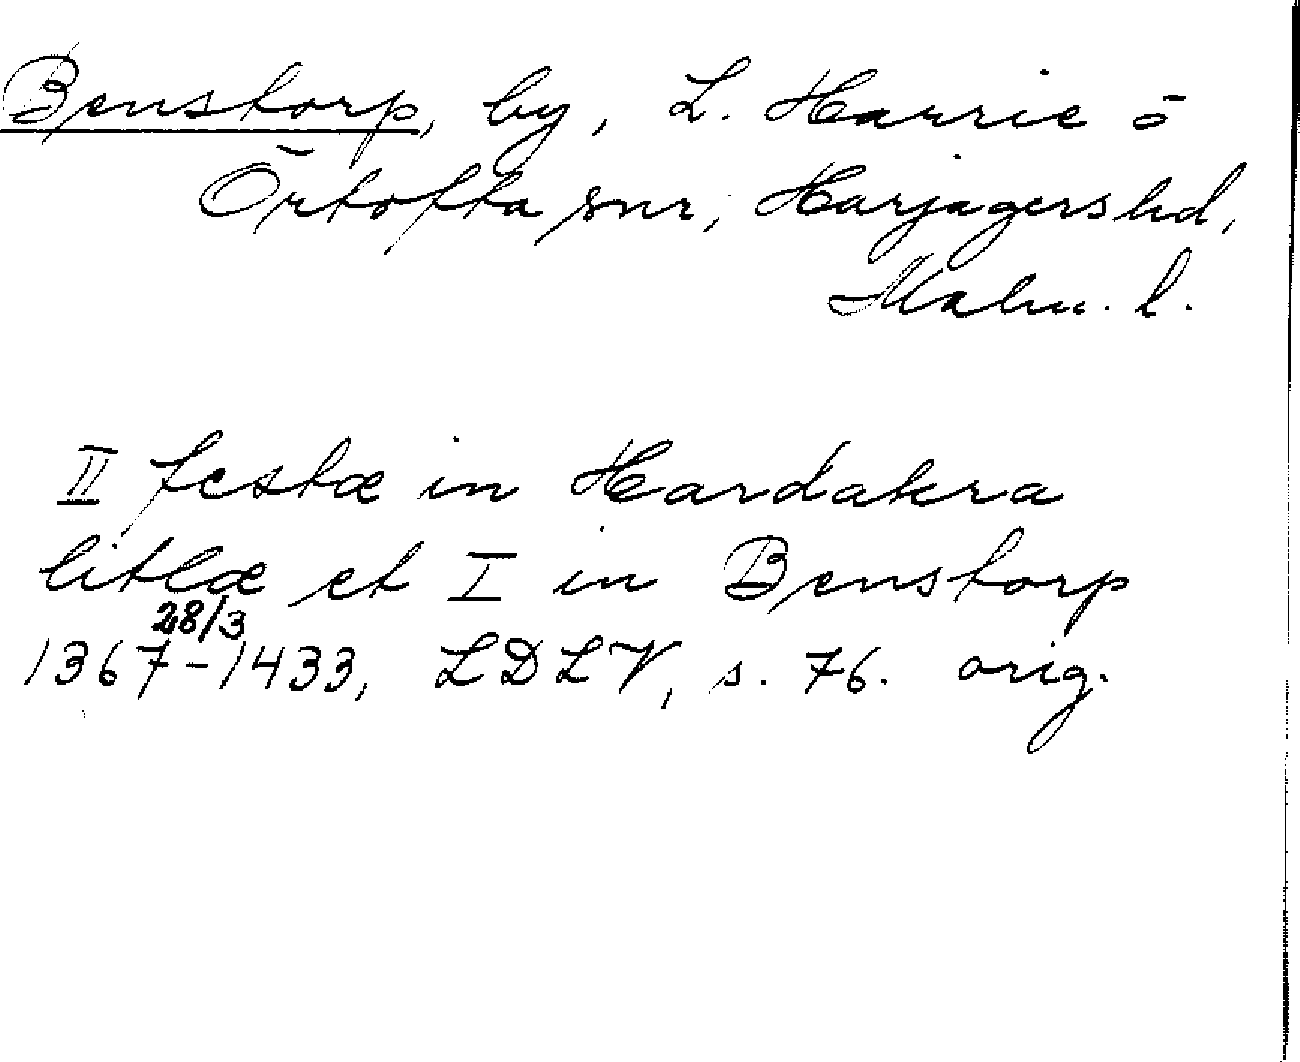 Benstorp, by, L. Harrie o
Örtofta snr, Harjagers hd,
Malm. l.
II festæ in Hardakra
litlæ et I in Benstorp
28/3
1367-1433, LDLV, s. 76. orig.